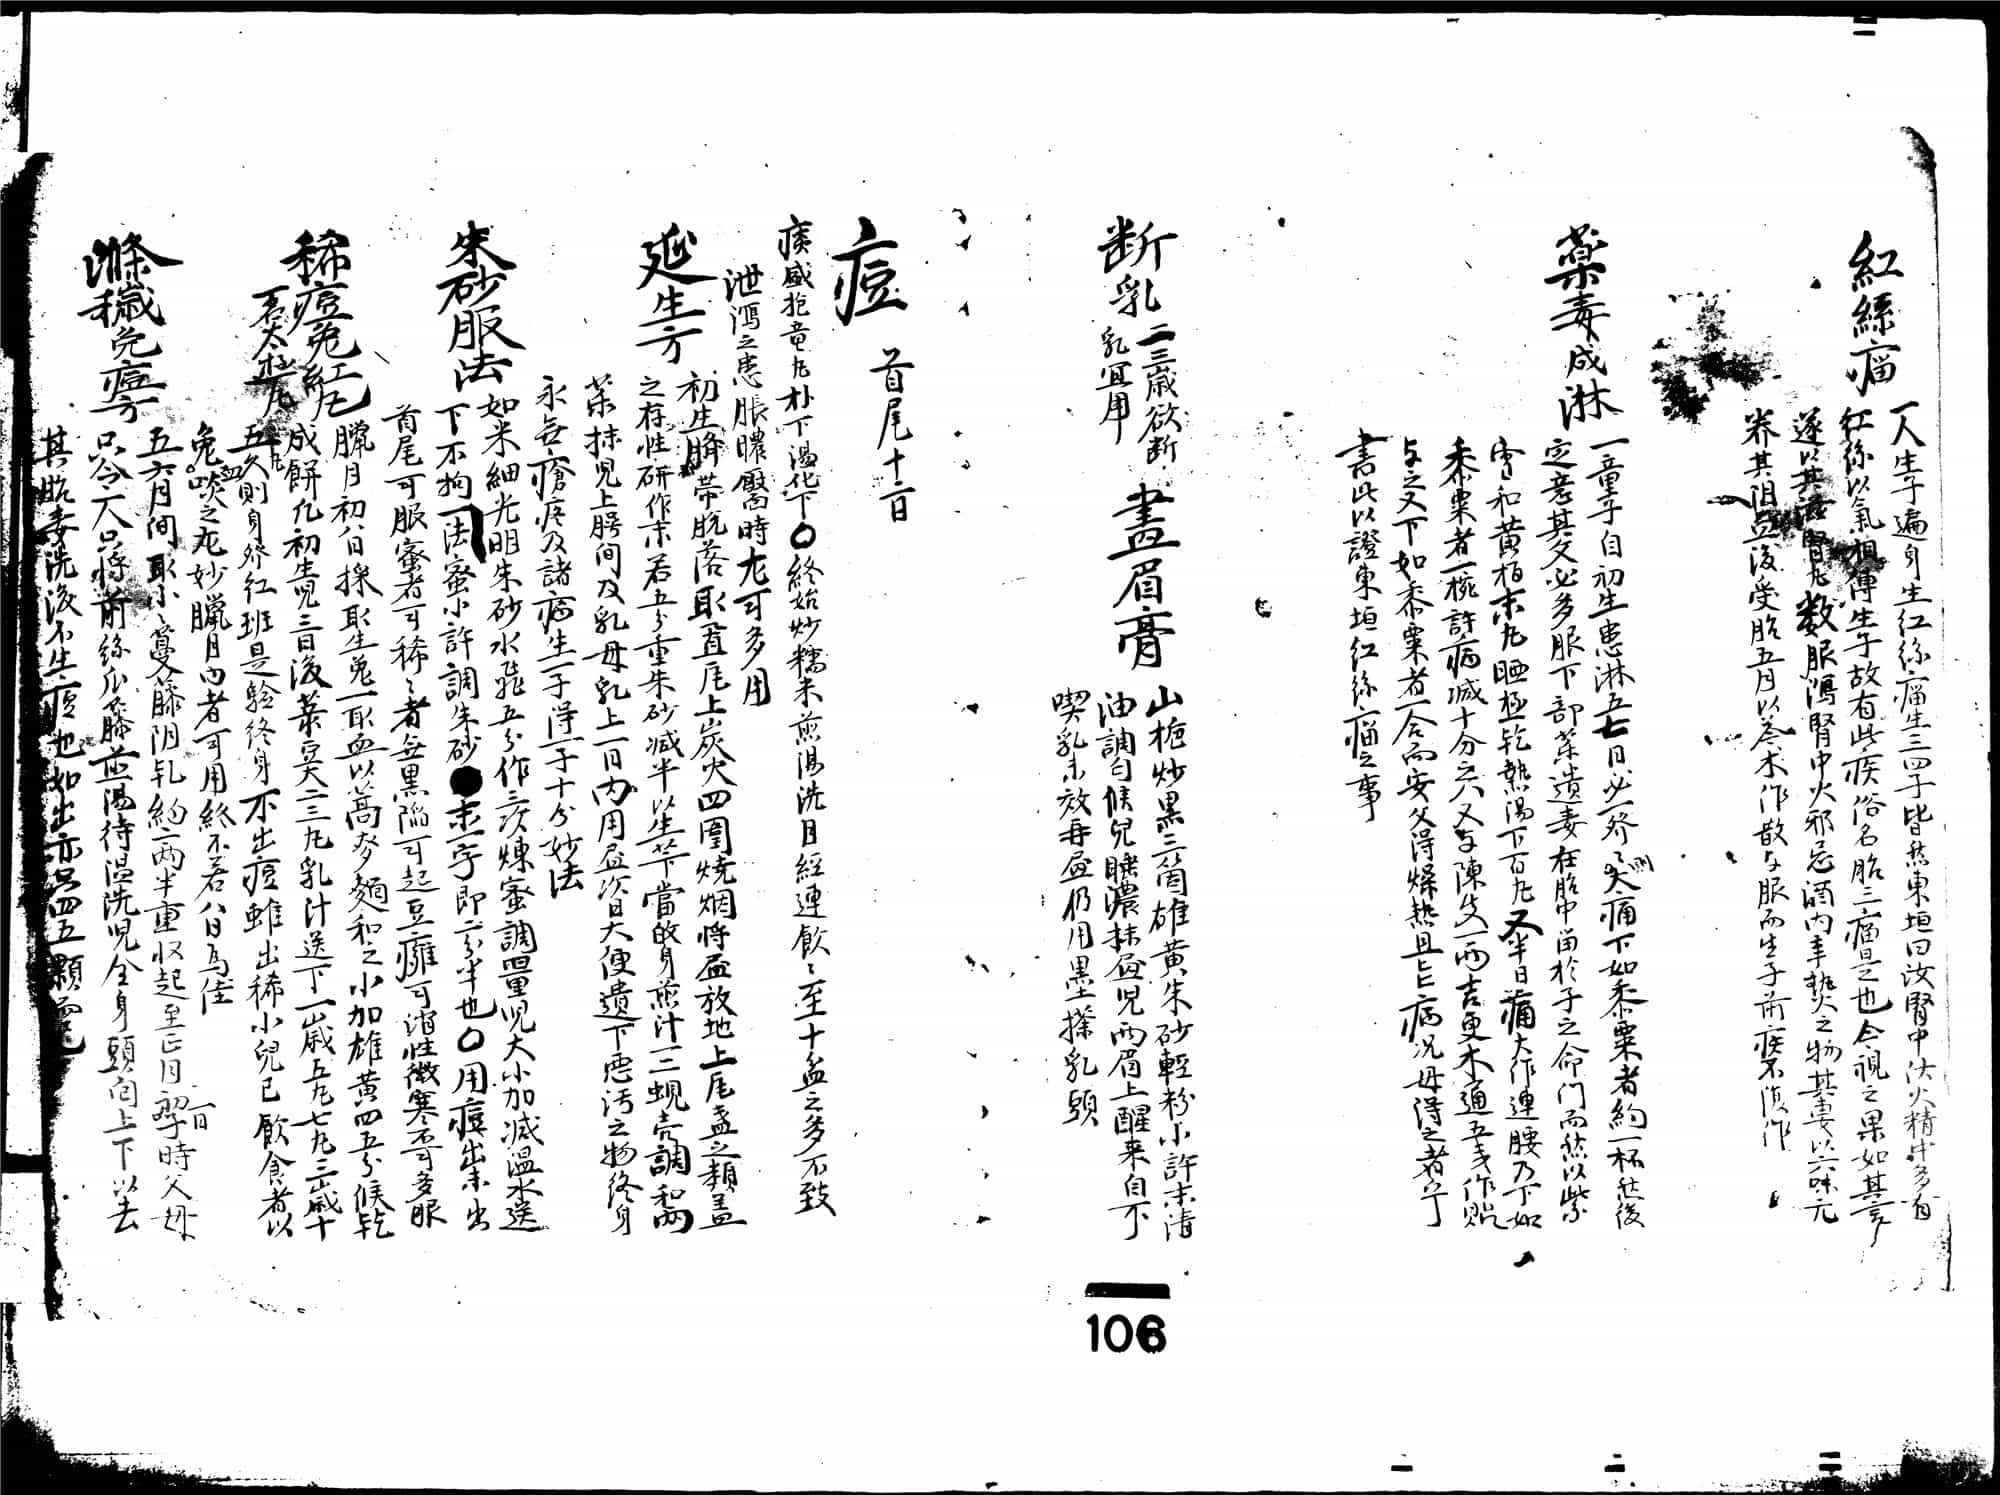 紅絲瘤
一人生子遍身生紅絲瘤生三四子皆然東垣曰汝腎中伏火精中多有
紅絲以氣相傳生子故有此疾俗名胎三瘤是也令視之果如其言
遂以其滋腎丸数服瀉腎中火邪忌酒肉辛熱之物其妻以六味元
养其阴血後受胎五月以参术作散与服而生子前疾不復作
藥毒成淋
一童子自初生患淋五七日必一發〻則大痛下如黍粟者約一杯然後
定意其父必多服下部藥遺毒在胎中留於子之命门而然以紫
雪和黄柏末丸晒極乾熱湯下百丸又半日痛大作連腰乃下如
黍粟者一椀許病减十分之六又与陳皮一両吉更木通五戔作貼
与之又下如黍粟者一合而安父得燥热且上病况母得之者乎
書此以證東垣紅絲瘤之事
断乳
二三歳欲断
乳宜用
畫眉膏
山梔炒黒三箇雄黄朱砂輕粉小許末清
油調勻候兒睡濃抹兒両眉上醒来自不
喫乳未效再仍用墨搽乳頭
痘
首尾十二日
痰盛抱竜丸朴下湯化下〇終始炒糯米煎湯洗目經連飲〻至十盃之多不致
泄瀉之患脹膿靨時尤可多用
延生方
初生臍带脱落取置瓦上炭火四圍燒烟将盡放地上瓦盞之類盖
之存性研作末若五分重朱砂减半以生芐當故身煎汁一二蜆壳調和両
藥抹児上腭间及乳母乳上一日内用盡次日大便遺下悪汚之物終身
永無瘡疹及諸病生一子得一子十分妙法
朱砂服法
如米細光明朱砂水飛五分作三次煉蜜調量児大小加减温水送
下不拘一法蜜小許調朱砂末一字即二分半也〇用痘出未出
首尾可服蜜者可稀〻者無黒陥可起豆癰可消性微寒不可多服
稀痘兔紅丸
一名太極丸
臘月初八日採取生兔一取血以蒿麥麺和之小加雄黄四五分候乾
成餅凡初生児三日後菉豆大二三丸乳汁送下一歳五九七丸三歳十
五丸久則身發紅斑是验終身不出痘雖出稀小兒已飲食者以
兔血啖之尤妙臘月内者可用終不若八日為佳
滌穢免痘方
五六月间取小〻蔓藤阴乾約二両半重収起至正月初一日子時父母
只令一人只将前絲瓜藤煎湯待温洗児全身頭面上下以去
其胎毒洗後不生痘也如出亦只四五顆而已
106